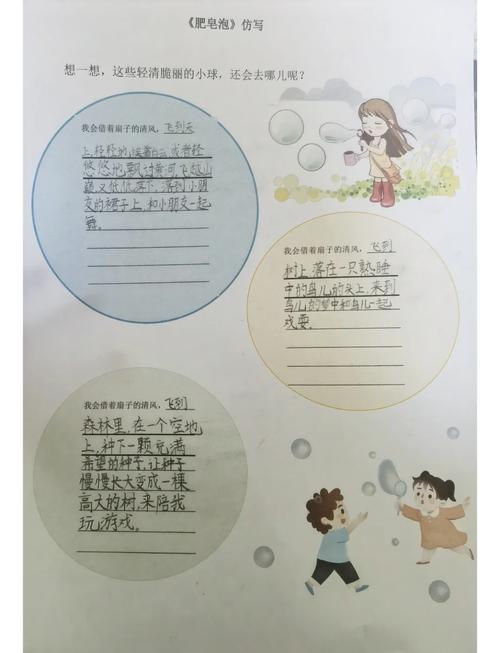 《肥皂泡》仿写
想一想，这些轻清脆丽的小球，还会去哪儿呢？
我会借着扇子的清风，飞到天
上，轻轻地挨着白云，或者轻
悠悠地飘过黄河飞越山
巅，又低低落下，落到小朋
友的裙子上，和小朋友一起
舞。
我会借着扇子的清风，飞到
树上，落在一只熟睡
中的鸟儿的头上，来到
鸟儿的梦中和鸟儿一起
戏耍。
我会借着扇子的清风，飞到
森林里，在一个空地
上，种下一颗充满
希望的种子，让种子
慢慢长大变成一棵
高大的树，来陪我
玩游戏。